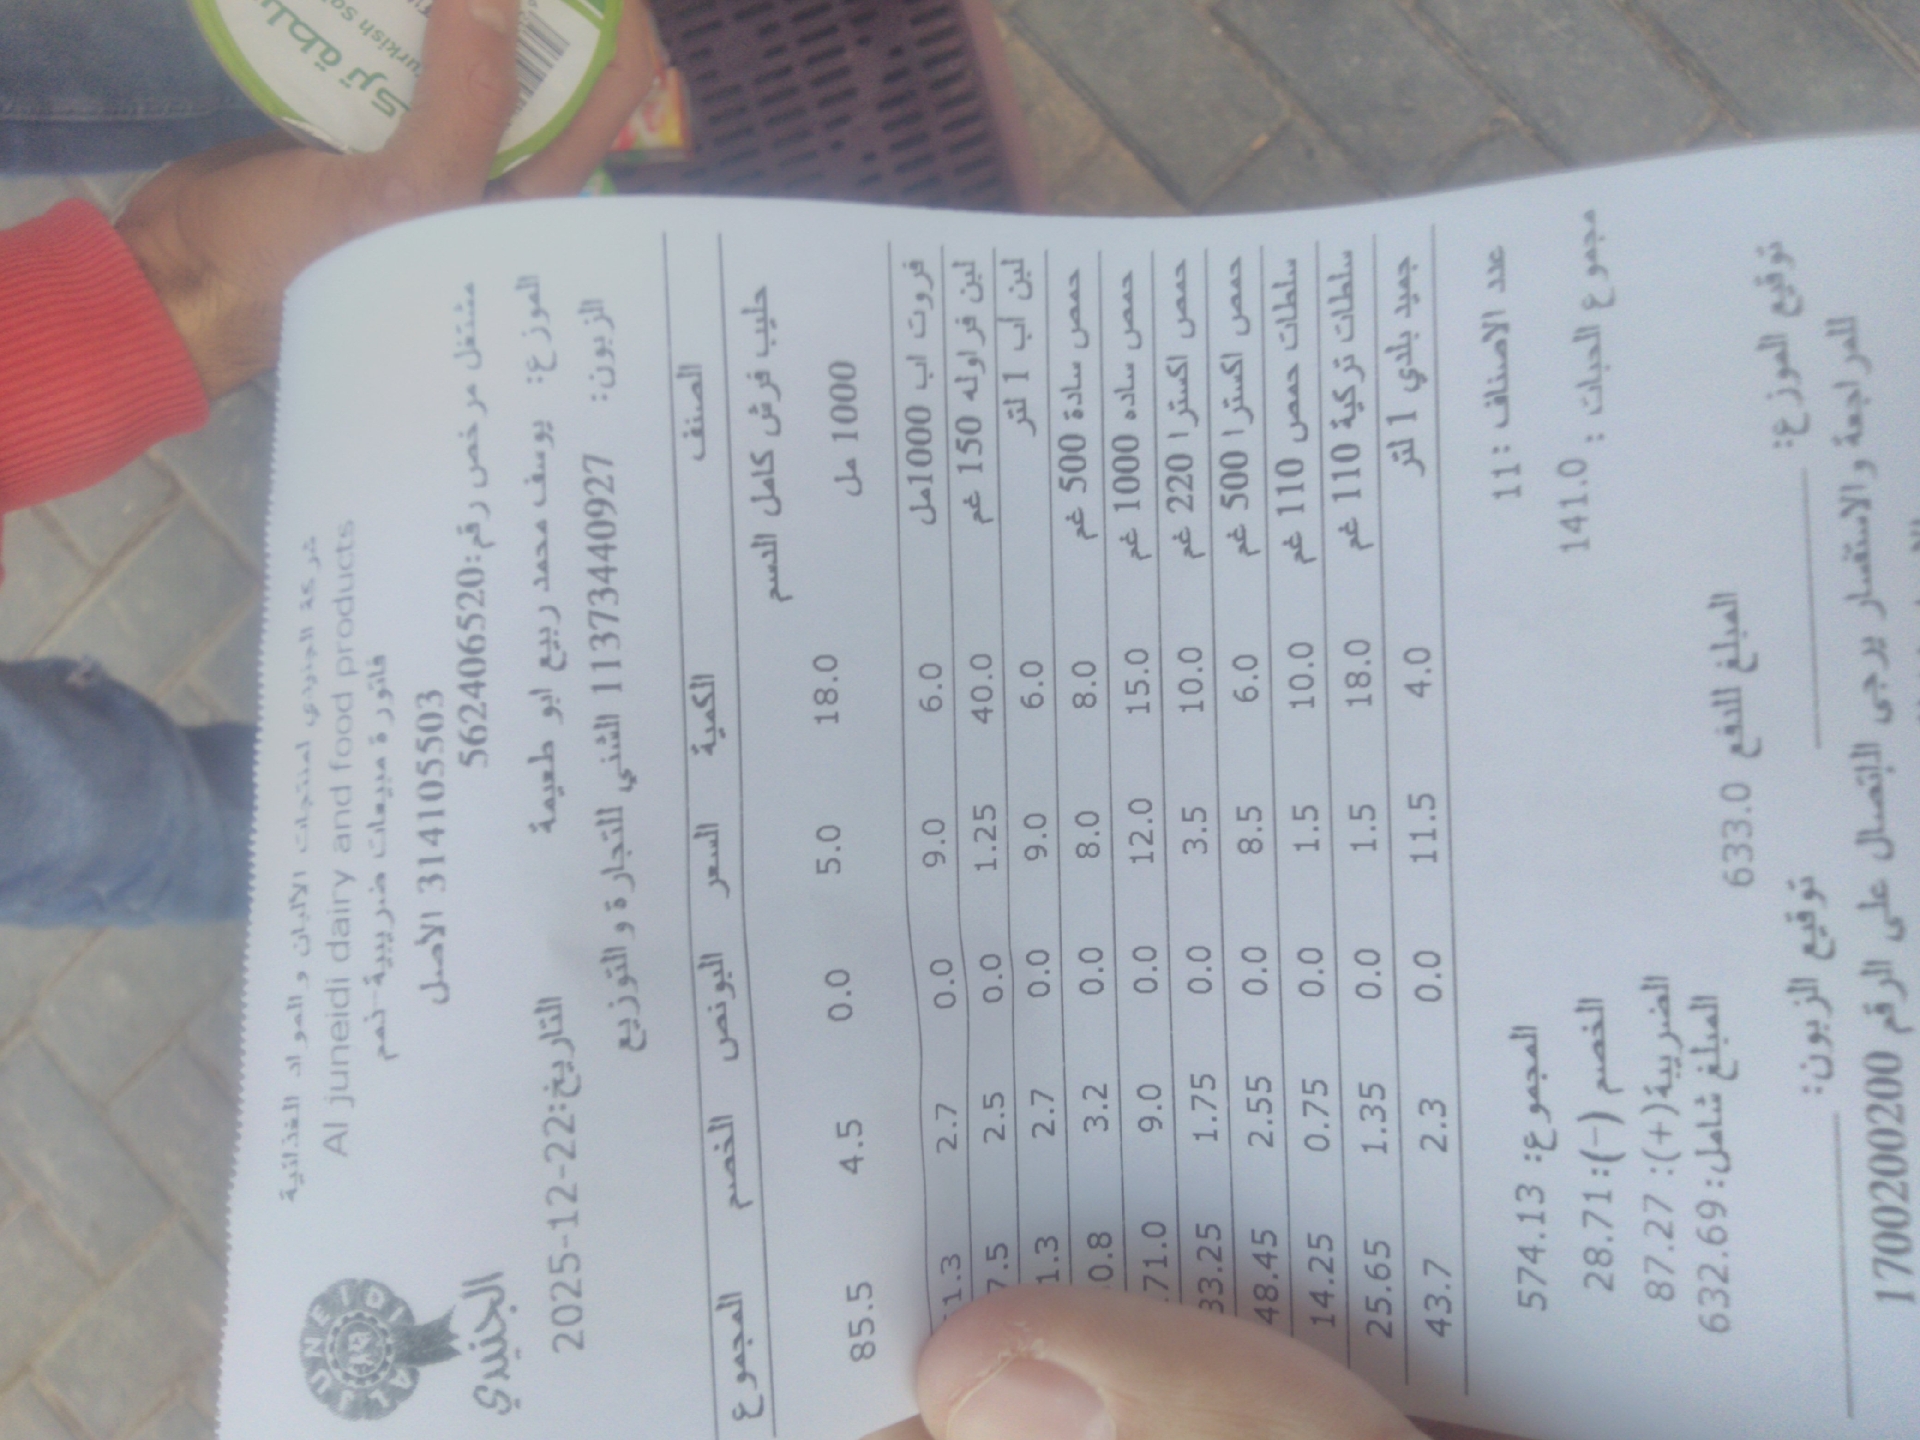 سلطة ترك
urkish sa
ALJUNEIDI
الجنيدي
شركة الجنيدي لمنتجات الالبان و المواد الغذائية
Al juneidi dairy and food products
فاتورة مبيعات ضريبية-نعم
314105503 الاصل
مشتغل مرخص رقم:562406520
الموزع: يوسف محمد ربيع ابو طعيمة
التاريخ:22-12-2025
الزبون: 11373440927 الشني للتجارة و التوزيع
الصنف الكمية السعر البونص الخصم المجموع
حليب فرش كامل الدسم
1000 مل 18.0 5.0 0.0 4.5 85.5
فروت اب 1000مل 6.0 9.0 0.0 2.7 1.3
لبن فراوله 150 غم 40.0 1.25 0.0 2.5 7.5
لبن اب 1 لتر 6.0 9.0 0.0 2.7 1.3
حمص سادة 500 غم 8.0 8.0 0.0 3.2 0.8
حمص ساده 1000 غم 15.0 12.0 0.0 9.0 71.0
حمص اكسترا 220 غم 10.0 3.5 0.0 1.75 33.25
حمص اكسترا 500 غم 6.0 8.5 0.0 2.55 48.45
سلطات حمص 110 غم 10.0 1.5 0.0 0.75 14.25
سلطات تركية 110 غم 18.0 1.5 0.0 1.35 25.65
جميد بلدي 1 لتر 4.0 11.5 0.0 2.3 43.7
عدد الاصناف :11
المجموع: 574.13
مجموع الحبات : 141.0
الخصم (-): 28.71
الضريبة(+): 87.27
المبلغ شامل: 632.69
المبلغ للدفع 633.0
توقيع الموزع:
توقيع الزبون:
للمراجعة والاستفسار يرجى الإتصال على الرقم 1700200200